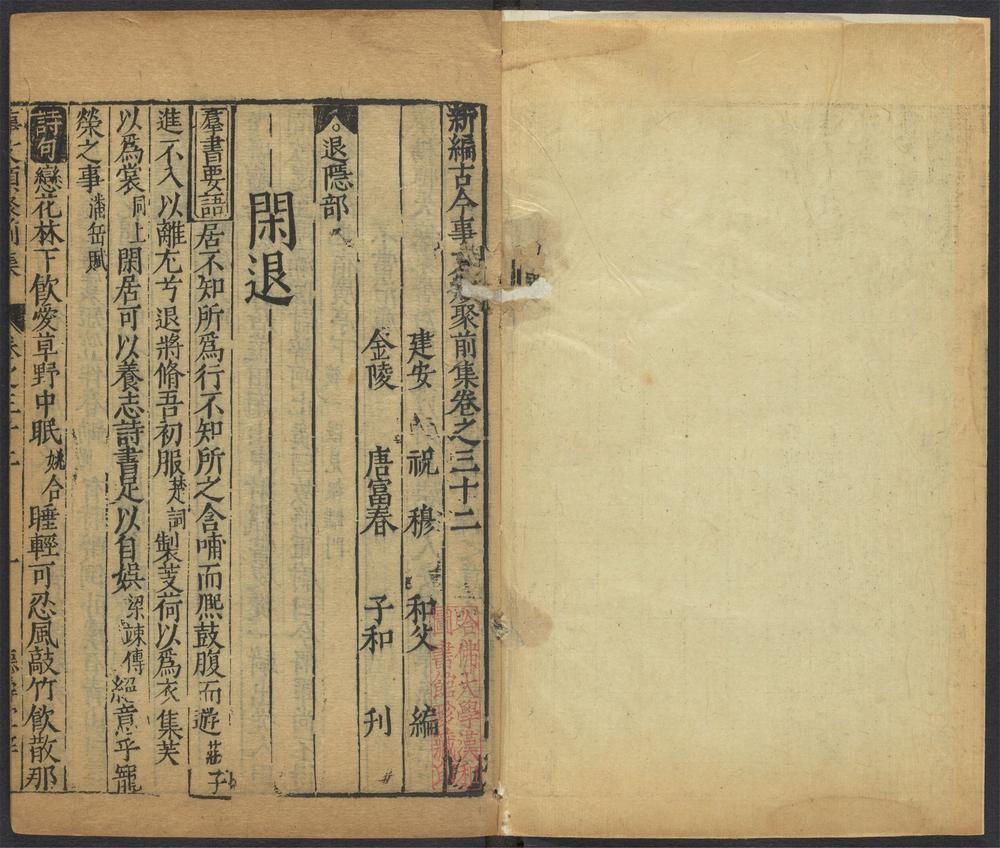 新編古今事文類聚前集卷之三十二
建安 祝 穆 和父 編
金陵 唐富春 子和 刋
退隱部
閑退
羣書要語 居不知所爲行不知所之含哺而熈鼓腹而遊 莊子
進不入以離尤兮退將脩吾初服 楚詞 製芰荷以爲衣集芙
以爲裳 同上 閑居可以養志詩書足以自娛 梁竦傳 絕意乎寵
榮之事 潘岳賦
詩句 戀花林下飲愛草野中眠 姚合 睡輕可忍風敲竹飲散那
哈佛大學漢和
圖書館珍藏印